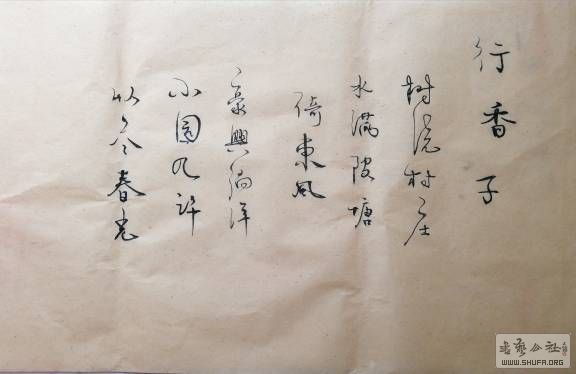 行香子
树绕村庄
水满陂塘
倚東風
豪興徜徉
小園几許
收尽春光
書藝公社
WWW.SHUFA.ORG